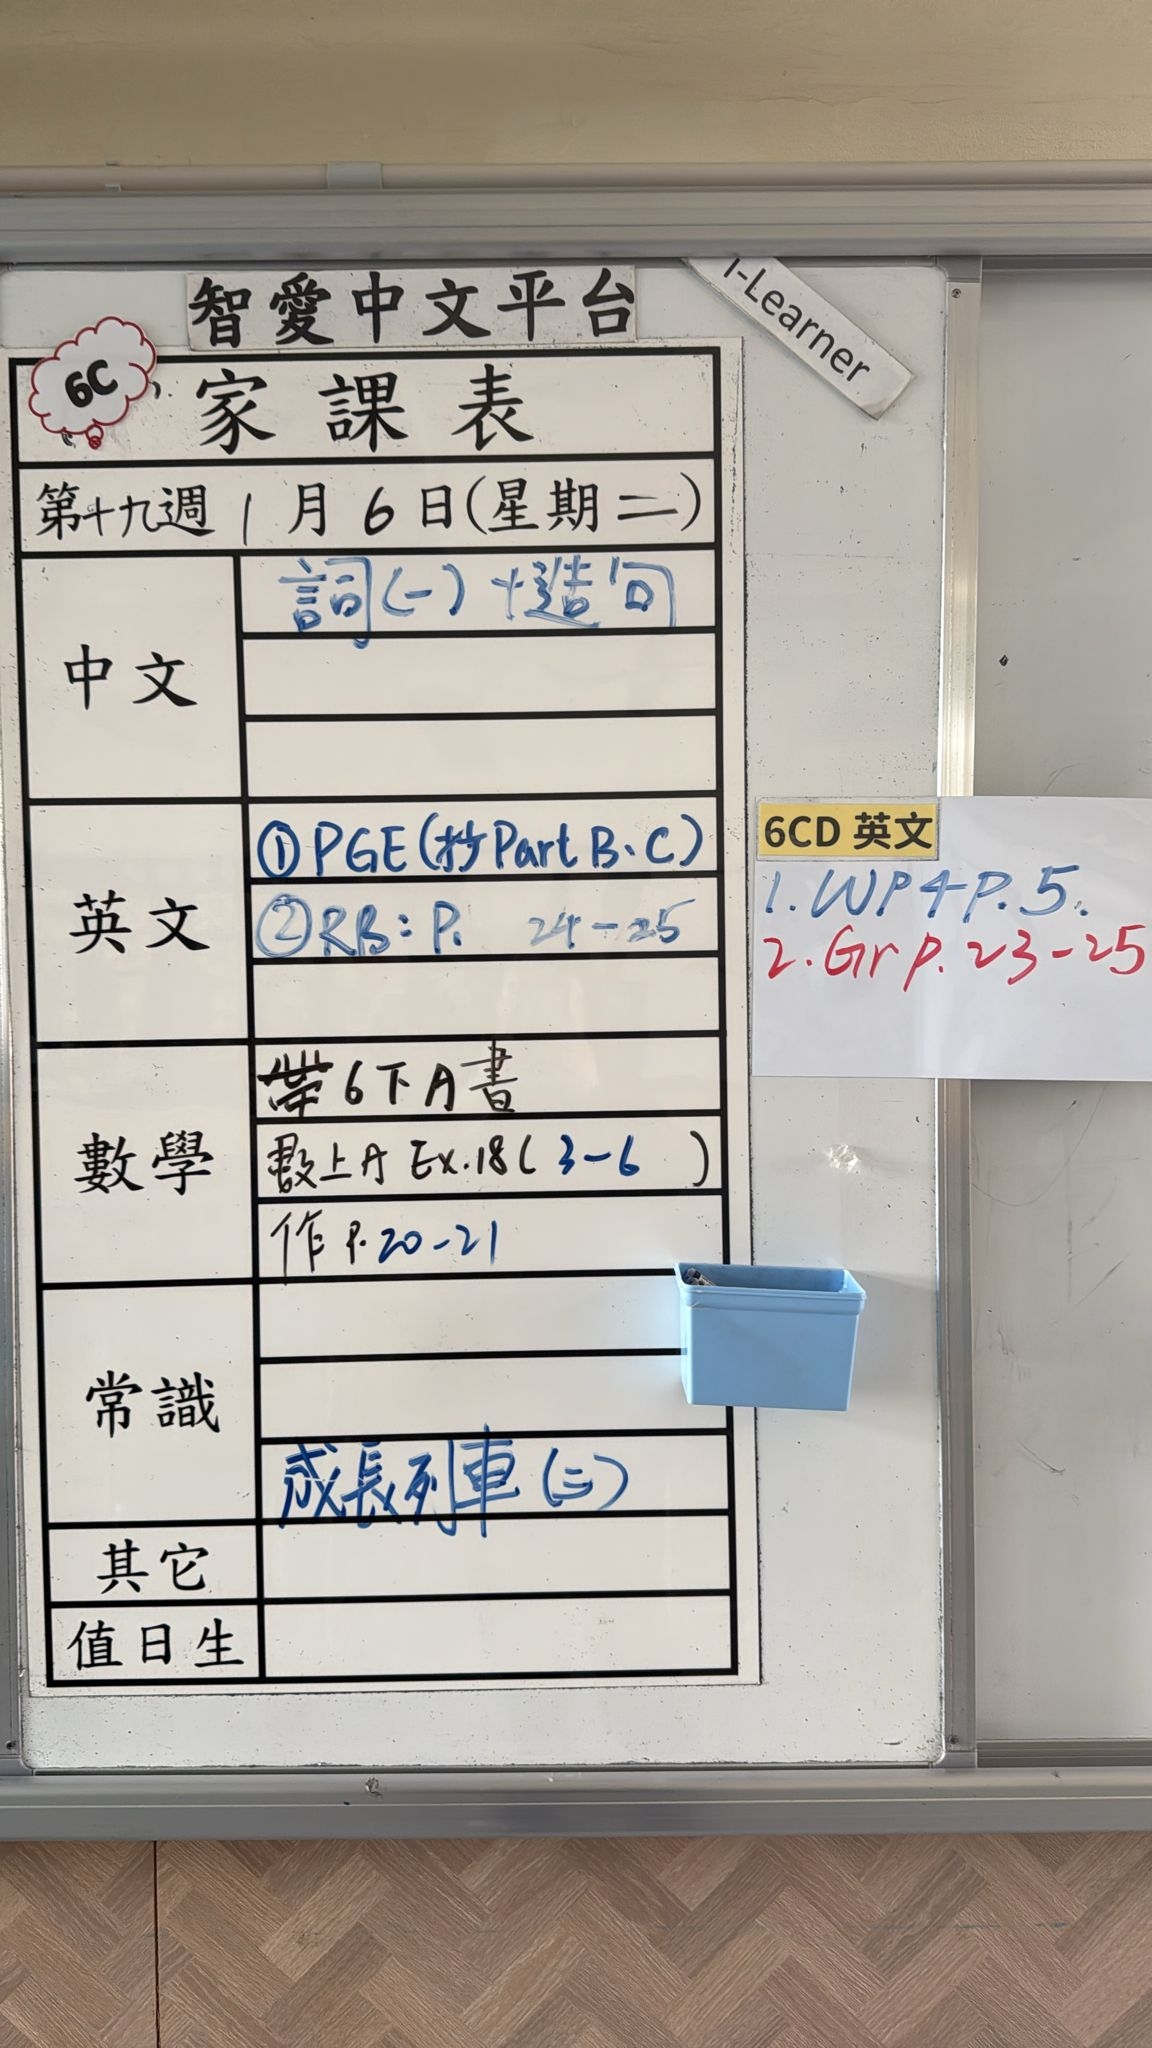 智愛中文平台
i-Learner
6C
家課表
第十九週 1月6日(星期二)
中文
詞(一)+造句
英文
①PGE(抄Part B、C)
②RB:P. 24-25
6CD 英文
1.WP4 P.5.
2.Gr P.23-25
數學
帶6下A書
數上A Ex.18(3-6)
作 P.20-21
常識
成長列車(二)
其它
值日生